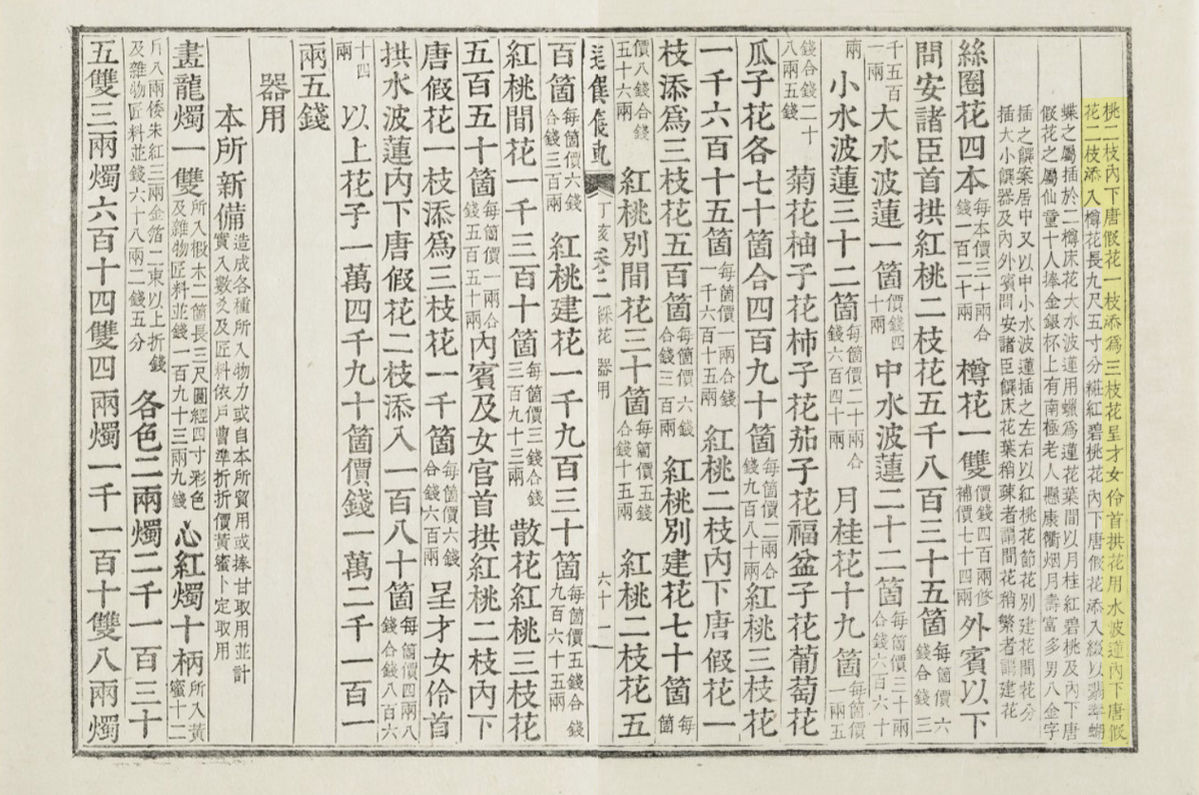 桃二枝內下唐假花一枝添爲三枝花呈才女伶首拱花用水波蓮內下唐假
花二枝添入樽花長九尺五寸分糚紅碧桃花內下唐假花添入綴以翡翠蝴
蝶之屬插於二樽床花大水波蓮用蠟爲蓮花葉間以月桂紅碧桃及內下唐
假花之屬仙童十人捧金銀杯上有南極老人懸康衢烟月壽富多男八金字
插之饌案居中又以中小水波蓮插之左右以紅桃花節別建花間花分
插大小饌器及內外賓問安諸臣饌床花葉稍疎者謂間花稍繁者謂建花
絲圈花四本每本價三十兩合錢一百二十兩 樽花一雙價錢四百兩修補價七十四兩外賓以下
問安諸臣首拱紅桃二枝花五千八百三十五箇每箇價六錢合錢三
千五百一兩大水波蓮一箇價錢四十兩 中水波蓮二十二箇每箇價三十兩合錢六百六十
兩 小水波蓮三十二箇每箇價二十兩合錢六百四十兩 月桂花十九箇每箇價一兩五
錢合錢二十八兩五錢 菊花柚子花柿子花茄子花福盆子花葡萄花
瓜子花各七十箇合四百九十箇每箇價二兩合錢九百八十兩紅桃三枝花
一千六百十五箇每箇價一兩合錢一千六百十五兩 紅桃二枝內下唐假花一
枝添爲三枝花五百箇每箇價六錢合錢三百兩 紅桃別建花七十箇每箇
價八錢合錢五十六兩 紅桃別間花三十箇每箇價五錢合錢十五兩 紅桃二枝花五
進饌儀軌 丁亥 卷二 綵花 器用 六十一
百箇每箇價六錢合錢三百兩 紅桃建花一千九百三十箇每箇價五錢合錢九百六十五兩
紅桃間花一千三百十箇每箇價三錢合錢三百九十三兩 散花紅桃三枝花
五百五十箇每箇價一兩合錢五百五十兩內賓及女官首拱紅桃二枝內下
唐假花一枝添爲三枝花一千箇每箇價六錢合錢六百兩 呈才女伶首
拱水波蓮內下唐假花二枝添入一百八十箇每箇價四兩八錢合錢八百六
十四兩 以上花子一萬四千九十箇價錢一萬二千一百一
兩五錢
器用
本所新備造成各種所入物力或自本所貿用或捧甘取用並計實入數爻及匠料依戶曹準折折價黃蜜卜定取用
畫龍燭一雙所入椵木二箇長三尺圓經四寸彩色及雜物匠料並錢一百九十三兩九錢 心紅燭十柄所入黃蜜十二
斤八兩倭朱紅三兩金箔二束以上折錢及雜物匠料並錢六十八兩二錢五分 各色二兩燭二千一百三十
五雙三兩燭六百十四雙四兩燭一千一百十雙八兩燭